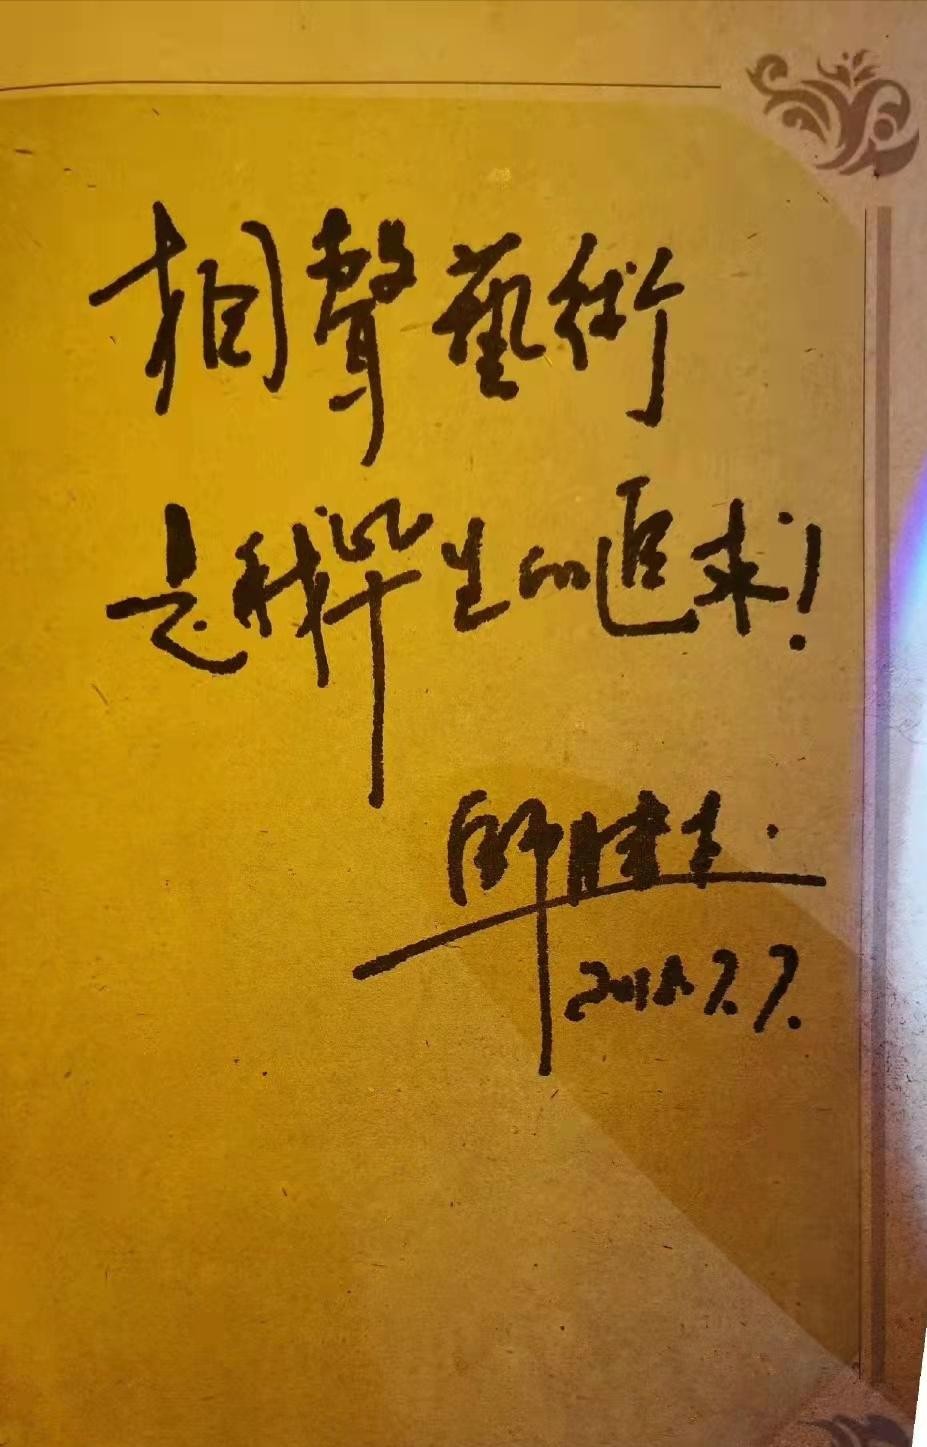 相聲藝術
是我畢生的追求!
師勝杰
2018.7.7.